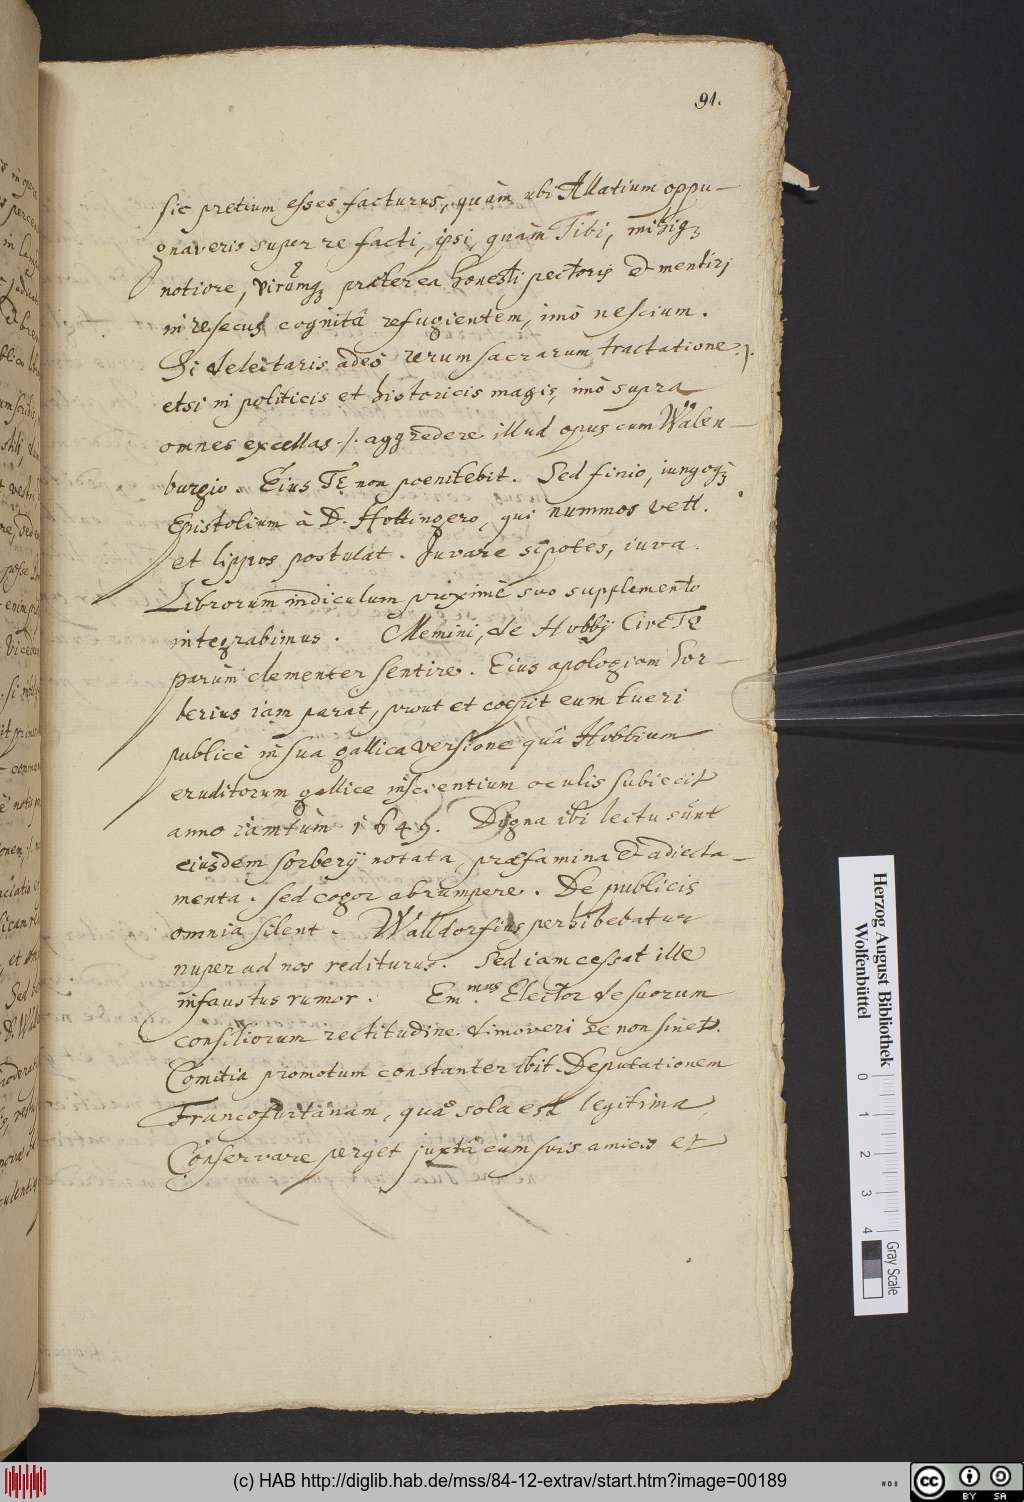 91.
sic pretium esses facturus, quàm ubi Allatium oppu-
gnaveris super re facti, ipsi, quàm Tibi, mihiq;
notiore, virumq; præterea honesti pectoris et mentirj
in resecus cognitâ refugientem, imò nescium.
Si delectaris adeò rerum sacrarum tractatione ./.
etsi in politicis et historicis magis, imò supra
omnes excellas ./. aggredere illud opus cum Walen-
burgio. Eius Te non poenitebit. Sed finio, iungoq;
Epistolium à D. Hottingero, qui nummos vett.
et lippos postulat. Juvare si potes, iuva.
Librorum indiculum proximè suo supplemento
integrabimus. Memini, de Hobby Cive Te
parùm clementer sentire. Eius apologiam Sor-
berius iam parat, prout et coepit eum tueri
publicè in sua gallica versione quâ Hobbium
eruditorum gallice inscientium oculis subiecit
anno iamtùm 1649. Digna ibi lectu sunt
eiusdem sorberij notata, præfamina et adiecta-
menta. sed cogor abrumpere. De publicis
omnia silent. Walldorfius perhibebatur
nuper ad nos rediturus. Sed iam cessat ille
infaustus rumor. Em.mus Elector de suorum
consiliorum rectitudine dimoveri se non sinet.
Comitia promotum constanter ibit. Deputationem
Francofurtanam, quæ sola est legitima,
Conservare perget juxtâ cum suis amicis et
Herzog August Bibliothek
Wolfenbüttel
0 1 2 3 4
Gray Scale
(c) HAB http://diglib.hab.de/mss/84-12-extrav/start.htm?image=00189
WDB
cc BY SA